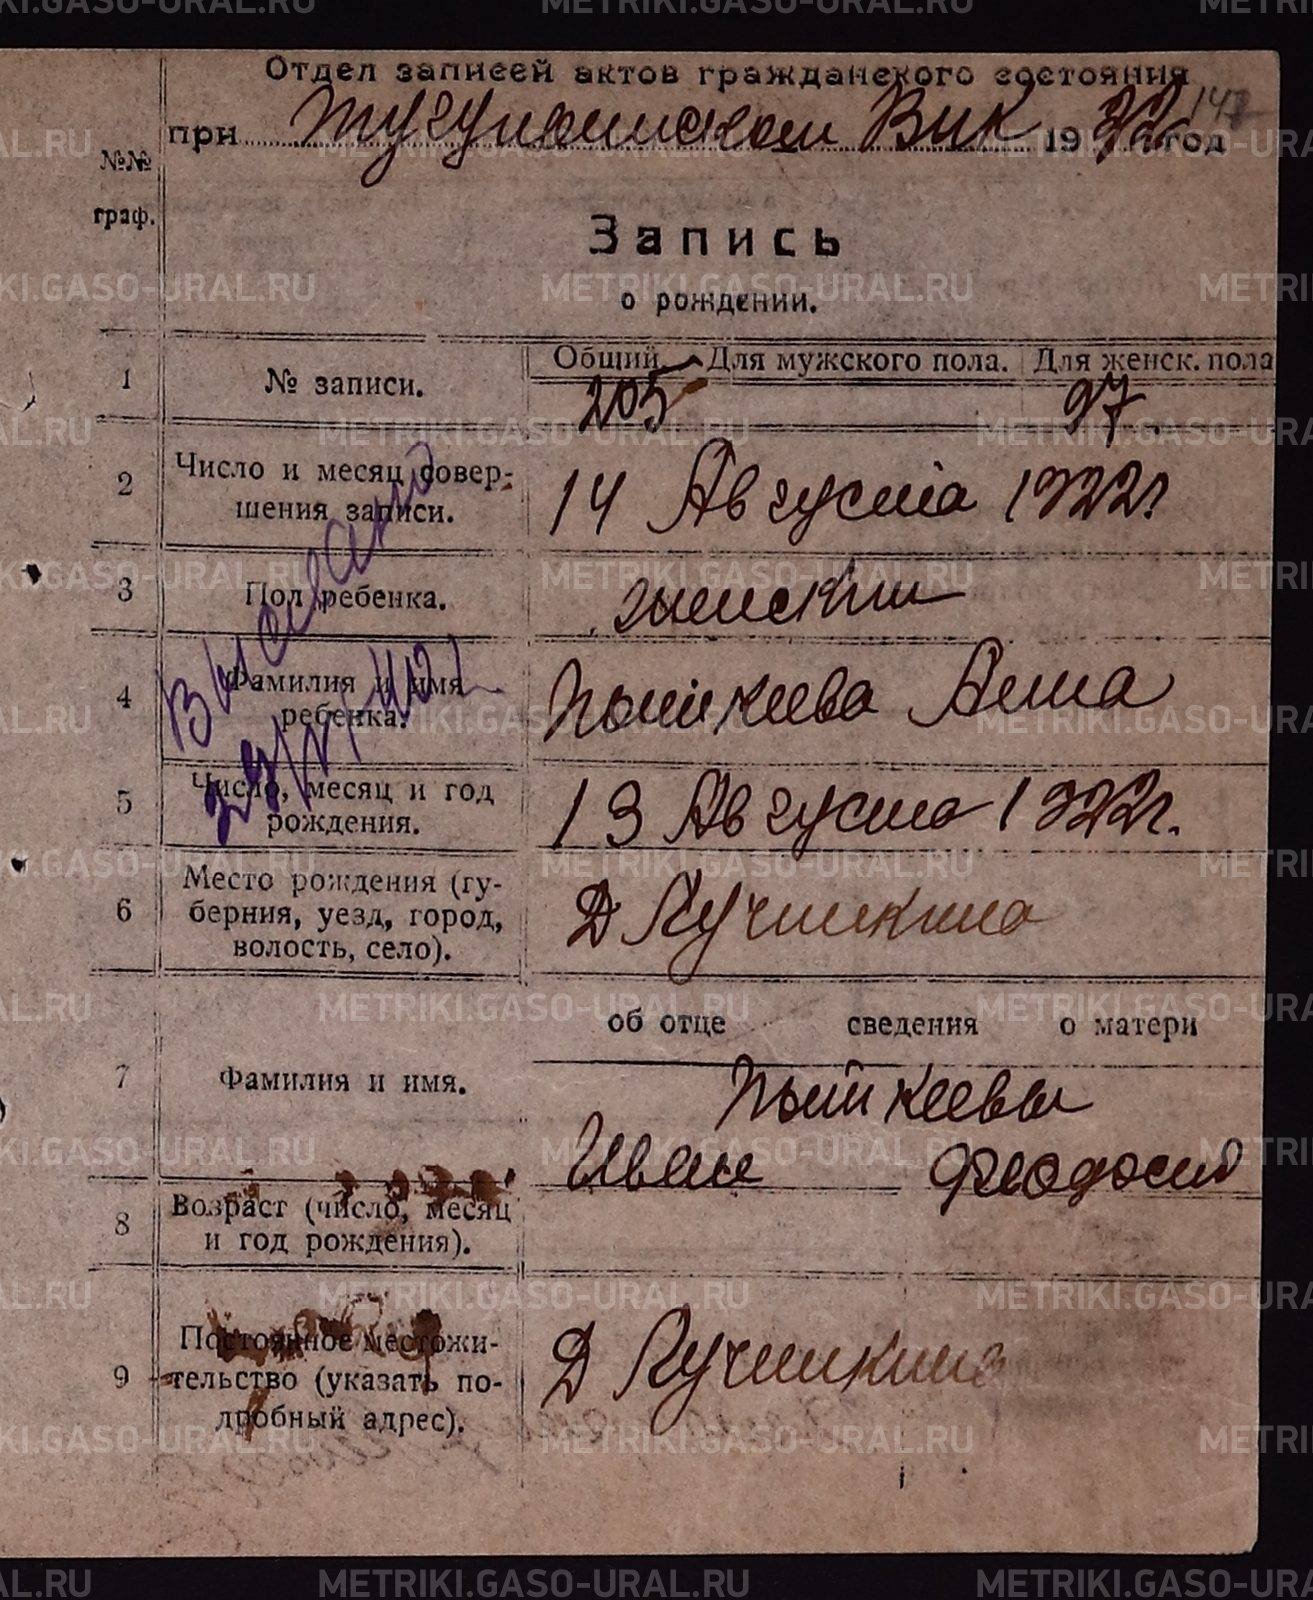 147
Отдел записей актов гражданского состояния
при Тугулымском Вик 1922 год
№№ граф.
Запись
о рождении.
Общий Для мужского пола. Для женск. пола
1 № записи. 205 97
2 Число и месяц совер-
шения записи. 14 Августа 1922 г
3 Пол ребенка. женский
4 Фамилия и имя
ребенка. Анна
Выслано
5 Число, месяц и год
рождения. 13 Августа 1922 г.
6 Место рождения (гу-
берния, уезд, город,
волость, село). Д Лучинкина
об отце сведения о матери
7 Фамилия и имя.
Иван Феодосия
8 Возраст (число, месяц
и год рождения).
9 Постоянное местожи-
тельство (указать по-
дробный адрес). Д Лучинкина
METRIKI.GASO-URAL.RU